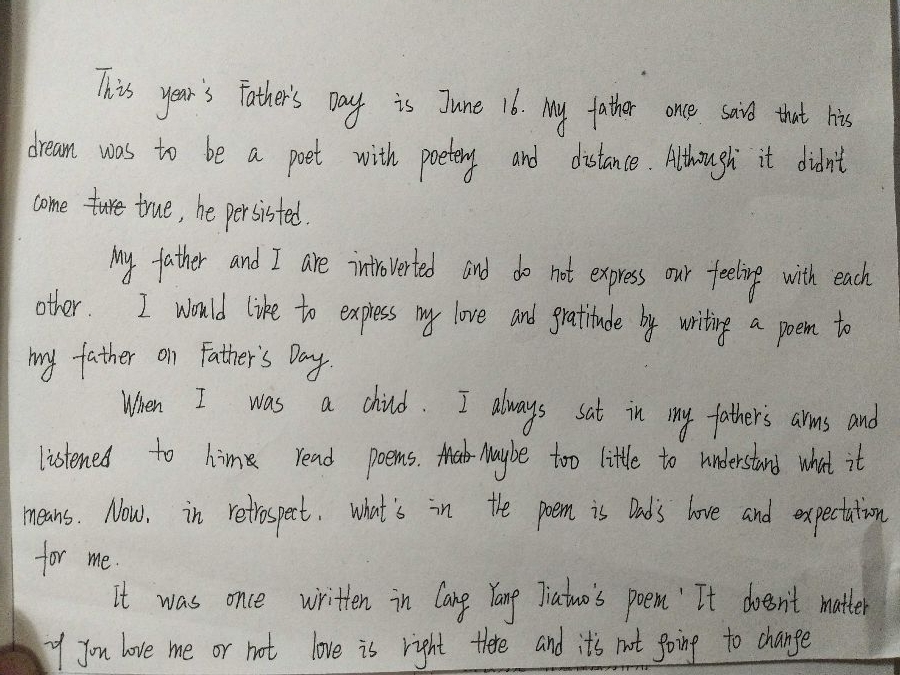 This year's Father's Day is June 16. My father once said that his
dream was to be a poet with poetery and distance. Although it didn't
come ture true, he persisted.
My father and I are introverted and do not express our feeling with each
other. I would like to express my love and gratitude by writing a poem to
my father on Father's Day.
When I was a child. I always sat in my father's arms and
listened to him read poems. Maybe too little to understand what it
means. Now, in retrospect, what's in the poem is Dad's love and expectation
for me.
It was once written in Cang Yang Jiatuo's poem ' It doesn't matter
if you love me or not love is right there and it's not going to change